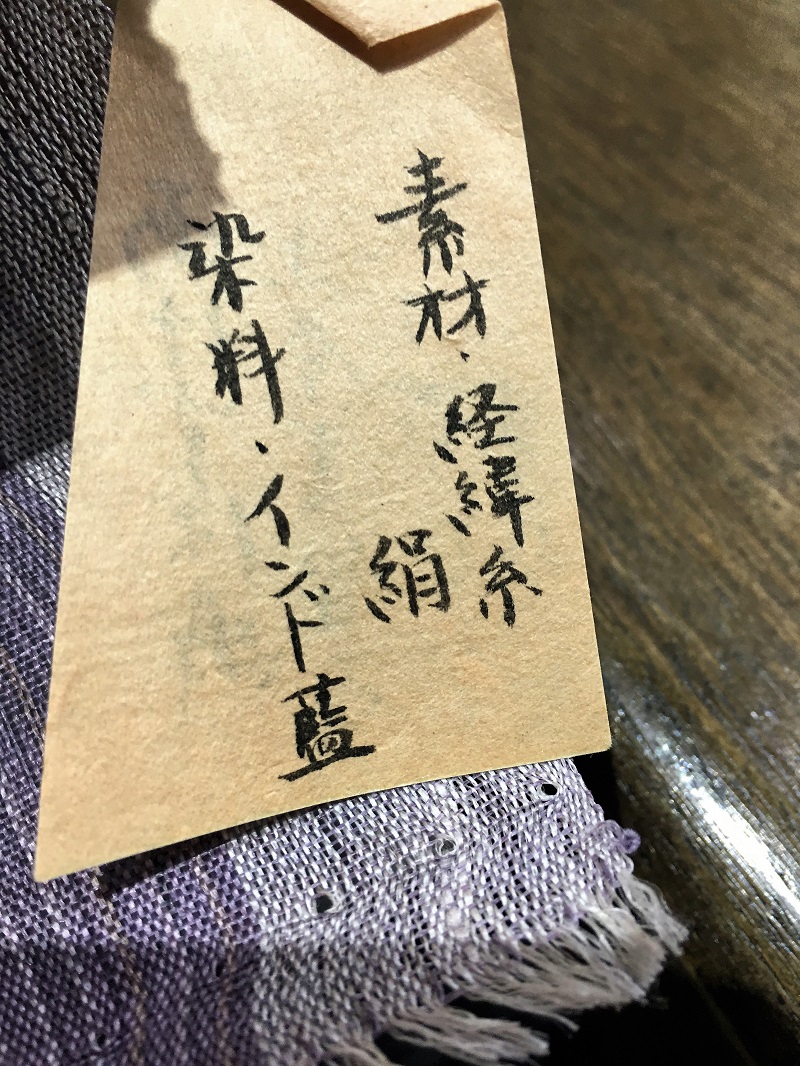 素材・経緯糸
絹
染料・インド藍